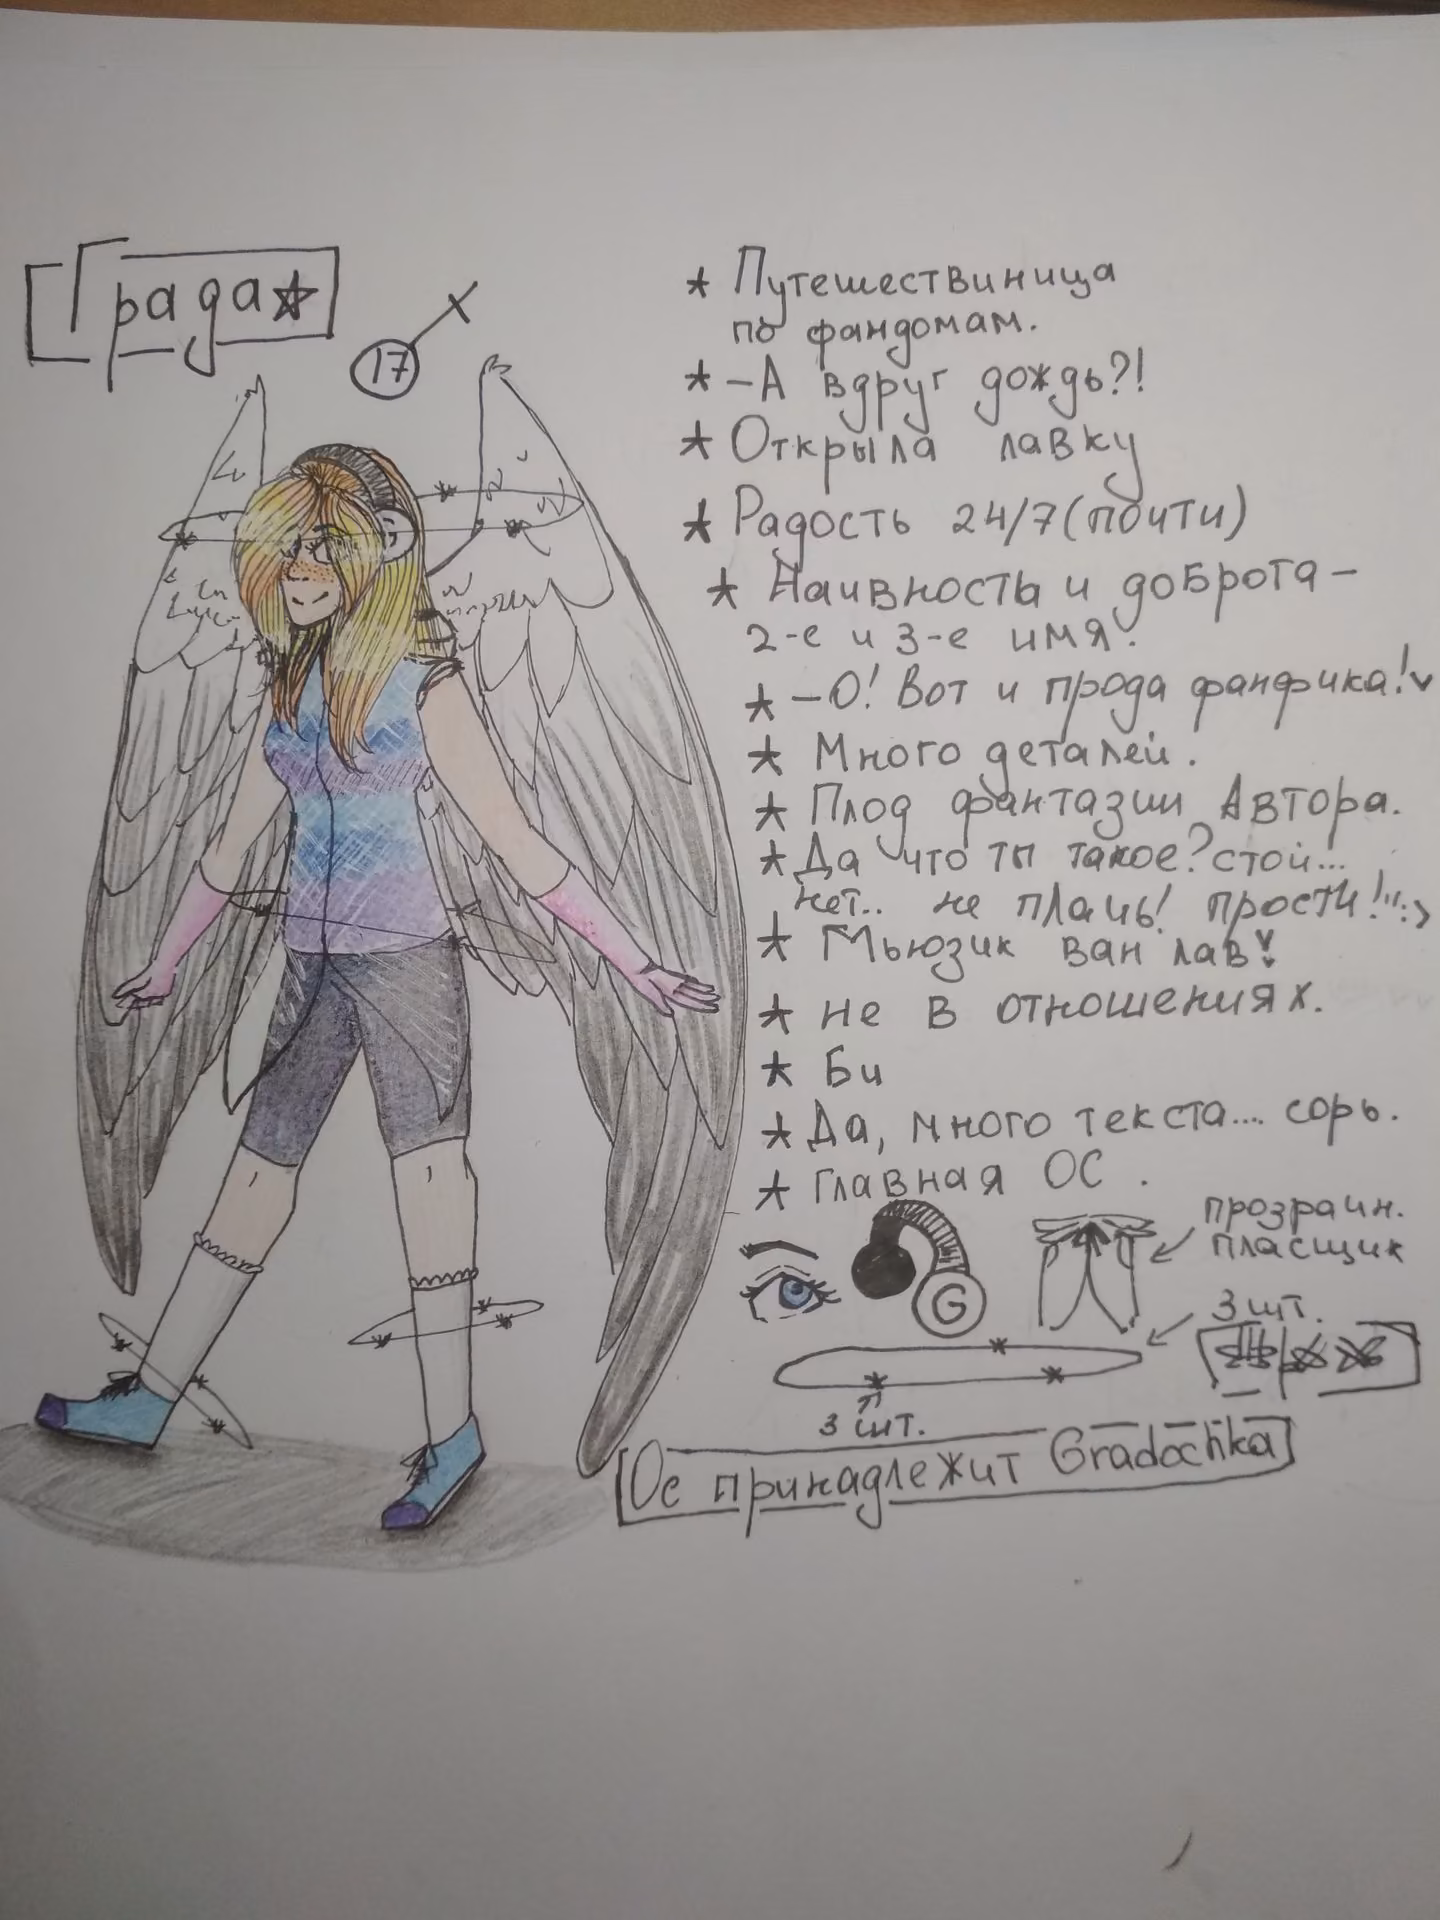 Града
17
★ Путешествиница
по фандомам.
★ –А вдруг дождь?!
★ Открыла лавку
★ Радость 24/7 (почти)
★ Наивность и доброта –
2-е и 3-е имя.
★ – О! Вот и прода фанфика!
★ Много деталей.
★ Плод фантазии Автора.
★ Да что ты такое? стой...
нет.. не плачь! прости!
★ Мьюзик ван лав!
★ не в отношениях.
★ Би
★ Да, много текста.... сорь.
★ Главная ОС.
прозрачн.
пласщик
G
3 шт.
3 шт.
Ос принадлежит Gradochka